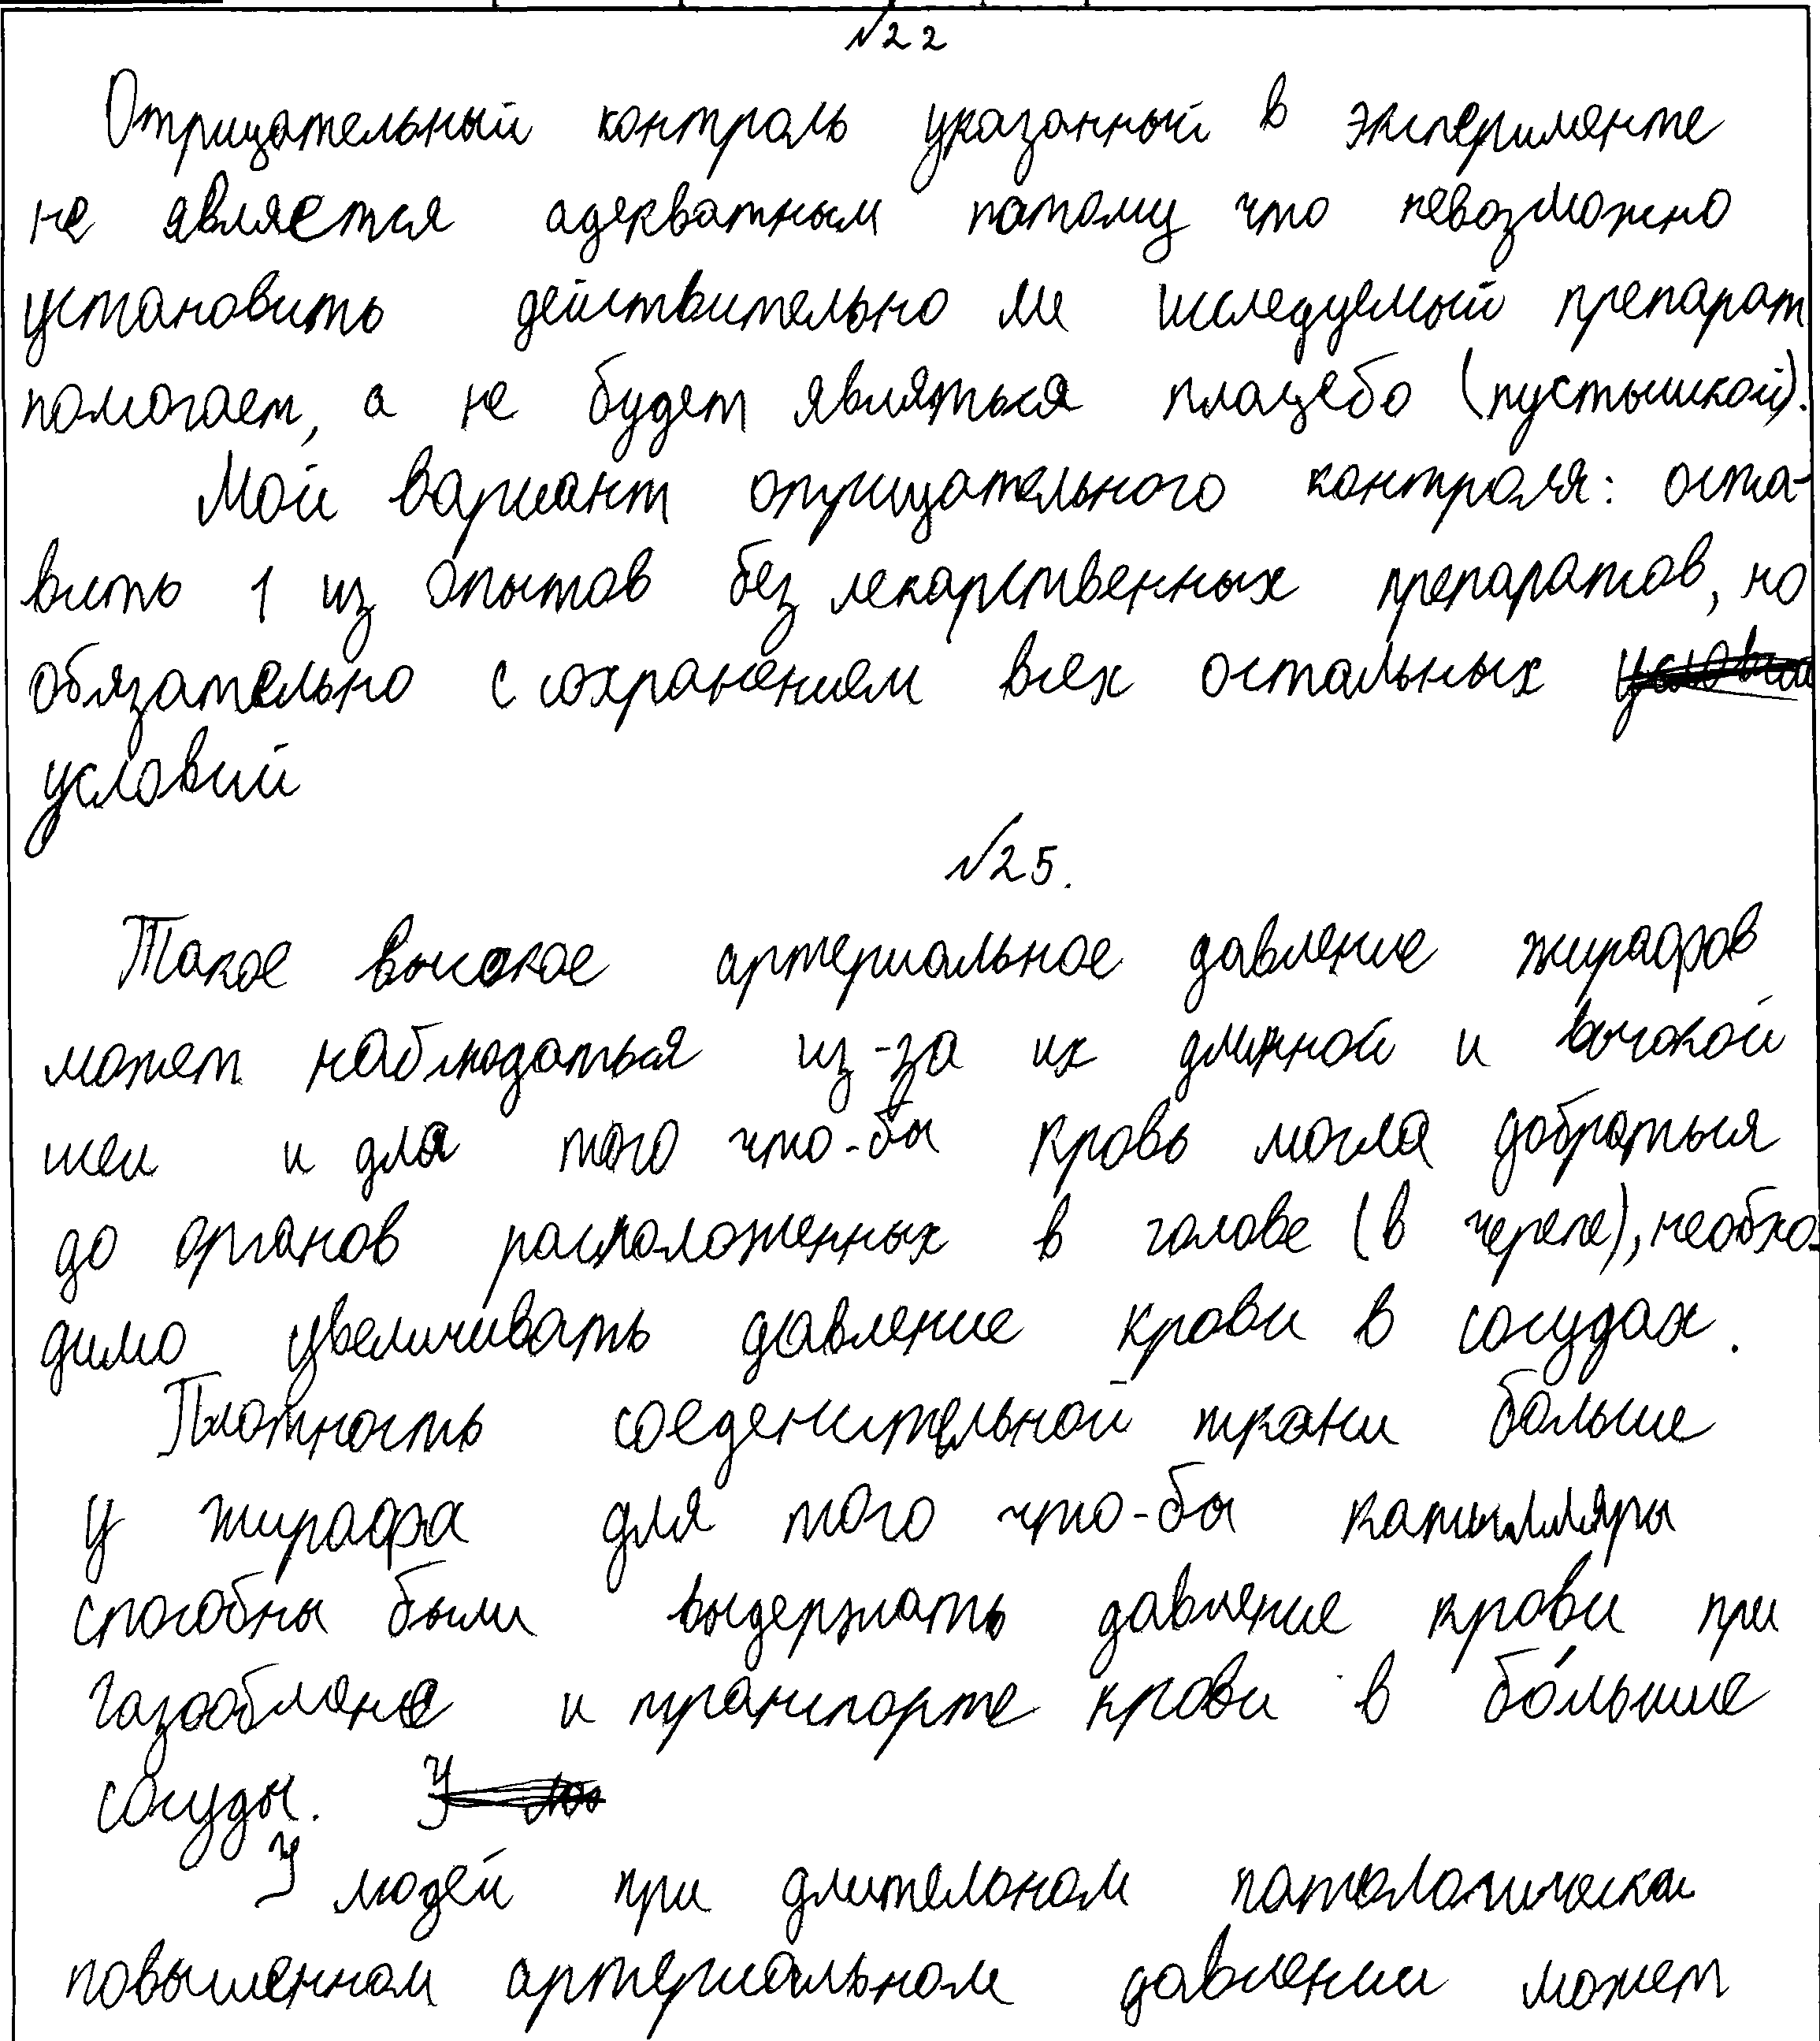 №22
Отрицательный контроль указанный в эксперименте
не является адекватным потому что невозможно
установить действительно ли исследуемый препарат
помогает, а не будет являться плацебо (пустышкой).
Мой вариант отрицательного контроля: оста-
вить 1 из опытов без лекарственных препаратов, но
обязательно с сохранением всех остальных
условий
№25.
Такое высокое артериальное давление жирафов
может наблюдаться из-за их длинной и высокой
шеи и для того что-бы кровь могла добраться
до органов расположенных в голове (в черепе), необхо-
димо увеличивать давление крови в сосудах.
Плотность соеденительной ткани больше
у жирафа для того что-бы капилляры
способны были выдержать давление крови при
газообмене и транспорте крови в бóльшие
сосуды.
У людей при длительном патологически
повышенном артериальном давлении может